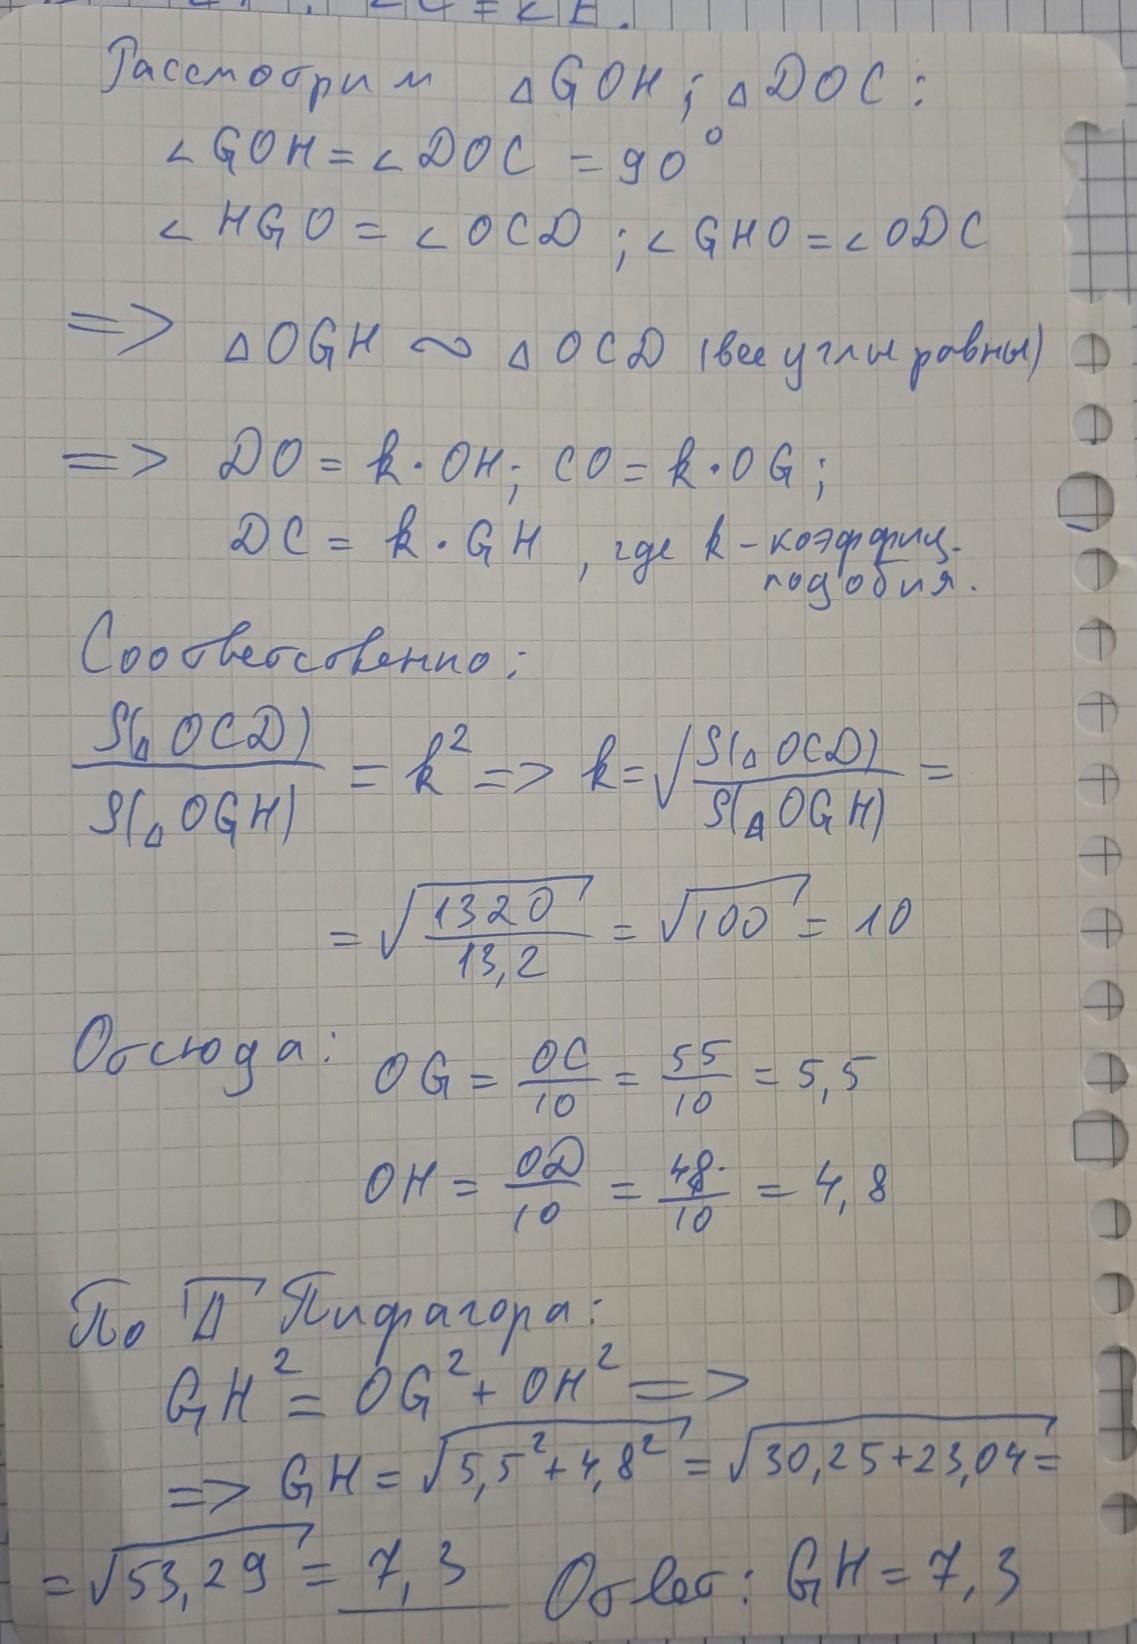 ∠C = ∠E.
Рассмотрим △GOH; △DOC:
∠GOH = ∠DOC = 90°
∠HGO = ∠OCD; ∠GHO = ∠ODC
=> △OGH ∾ △OCD (все углы равны)
=> DO = k·OH; CO = k·OG;
DC = k·GH, где k - коэффиц.
подобия.
Соответсвенно:
S(△OCD)/S(△OGH) = k² => k = √(S(△OCD)/S(△OGH)) =
= √(1320/13,2) = √100 = 10
Отсюда: OG = OC/10 = 55/10 = 5,5
OH = OD/10 = 48/10 = 4,8
По Т Пифагора:
GH² = OG² + OH² =>
=> GH = √(5,5² + 4,8²) = √(30,25 + 23,04) =
= √53,29 = 7,3 Ответ: GH = 7,3